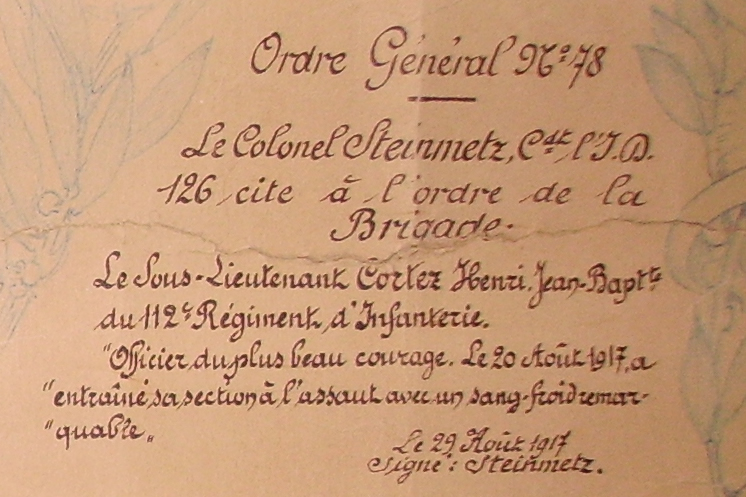 Ordre Général Nº 78
Le Colonel Steinmetz, Cdt l'I.D.
126 cite à l'ordre de la
Brigade.
Le Sous-Lieutenant Cortez Henri, Jean-Baptte
du 112e Régiment d'Infanterie.
"Officier du plus beau courage. Le 20 Août 1917, a
"entraîné sa section à l'assaut avec un sang-froid remar-
"quable"
Le 29 Août 1917
Signé : Steinmetz.